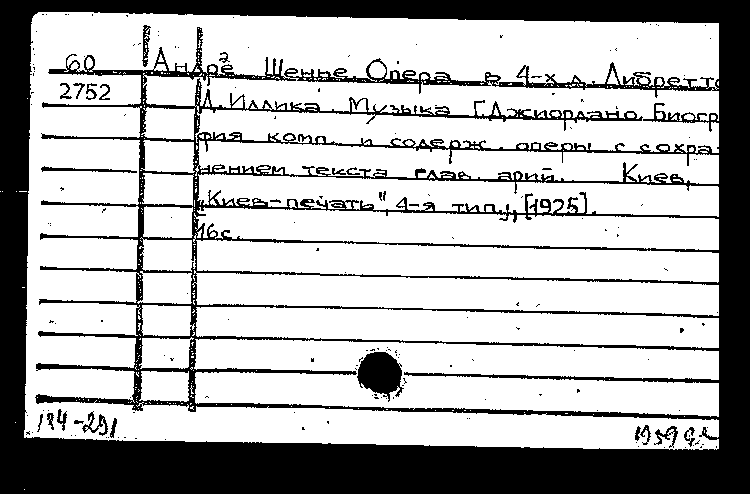 60 Андре² Шенье. Опера в 4-х д. Либретто
2752 Л. Иллика. Музыка Г. Джиордано. Биогр
фия комп. и содерж. оперы с сохра
нением текста глав. арий. Киев,
„Киев-печать", 4-я тип., [1925].
16с.
194-291